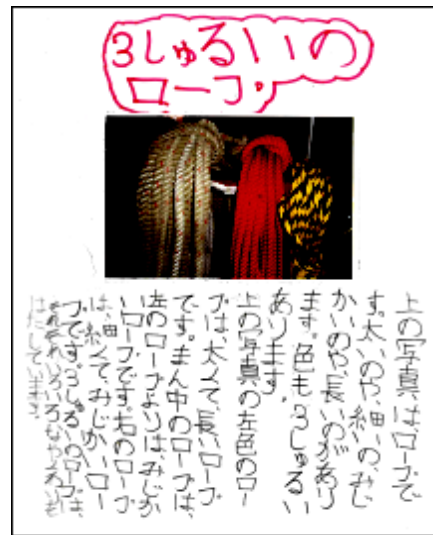 3しゅるいの
ロープ
上の写真はロープで
す。太いのや、細いの、みじ
かいのや、長いのがあり
ます。色も3しゅるい
あります。
上の写真の左色のロー
プは、太くて、長いロープ
です。まん中のロープは、
左のロープよりは、みじか
いロープです。右のロープ
は、細くて、みじかいロー
プです。3しゅるいのロープは、
それぞれいろいろな
はたしています。